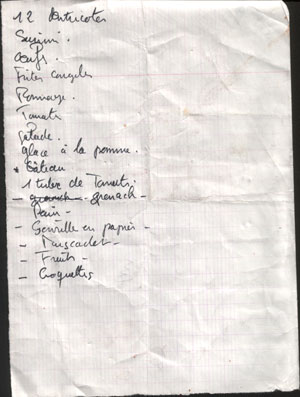 12 entrecotes
Surimi.
Oeufs.
Frites congelés
Fromage.
Tomate
Salade.
glace à la pomme.
Gâteau
1 tube de Tomate
- grenach
Pain -
- Serviette en papier -
- Muscadet -
- Fruits -
- Croquettes